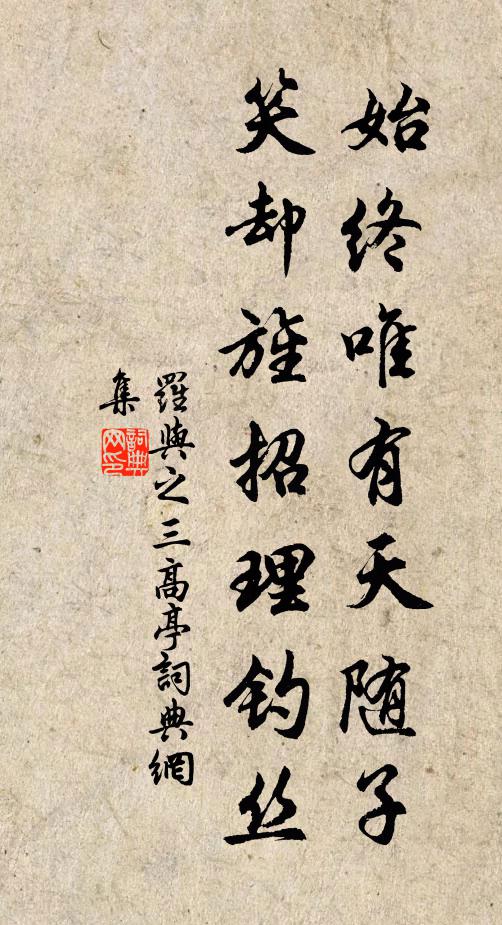 始终唯有天随子
笑却旌招理钓丝
羅與之三高亭詞典網
集
詞典網印